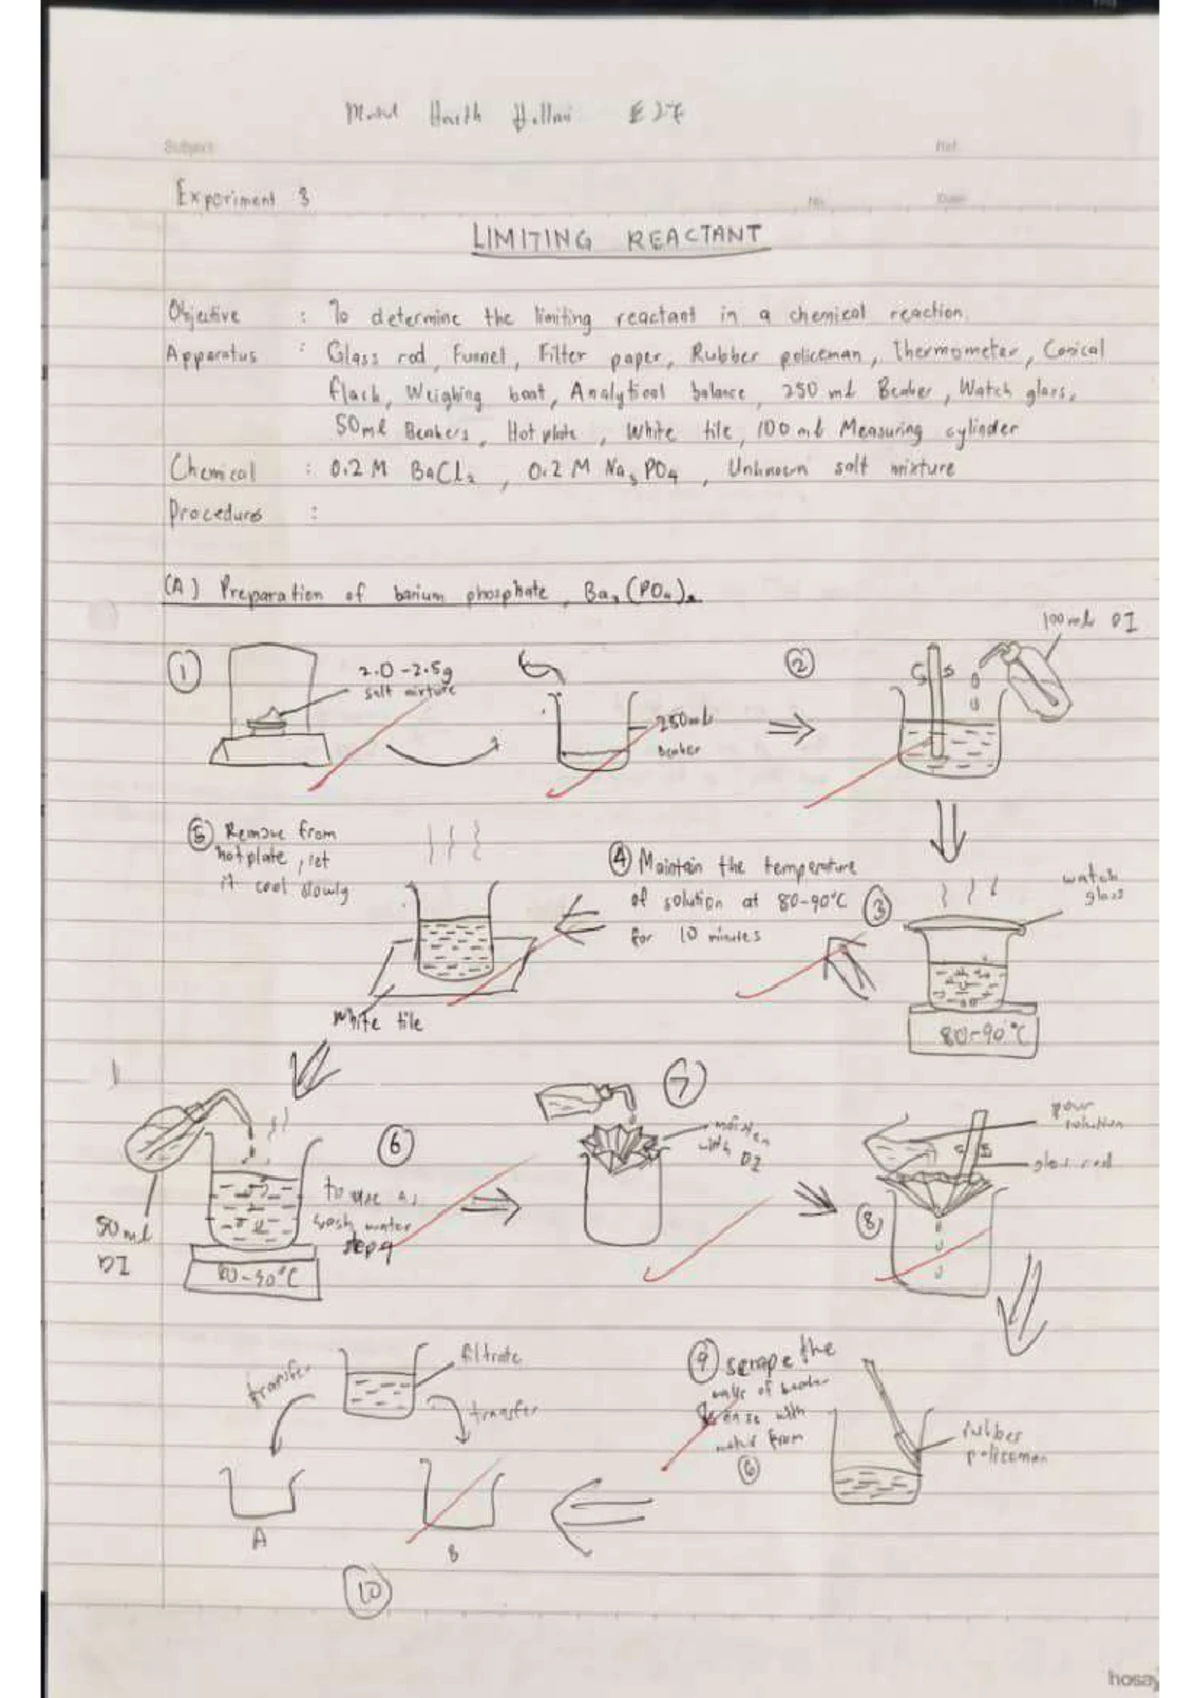 Harith E27
Subject
Ref
Experiment 3
No. Date
LIMITING REACTANT
Objective : To determine the limiting reactant in a chemical reaction.
Apparatus : Glass rod, Funnel, Filter paper, Rubber policeman, Thermometer, Conical
flask, Weighing boat, Analytical balance, 250 mL Beaker, Watch glass,
50ml Beakers, Hot plate, White tile, 100 mL Measuring cylinder
Chemical : 0.2 M BaCl₂, 0.2 M Na₃PO₄, Unknown salt mixture
Procedure :
(A) Preparation of barium phosphate, Ba₃(PO₄)₂
100 mL DI
1
2.0 - 2.5g
salt mixture
250mL
beaker
2
5 Remove from
hotplate, let
it cool slowly
White tile
4 Maintain the temperature
of solution at 80-90°C
for 10 minutes
3
watch
glass
80-90°C
50 ml
DI
80-90°C
6
to use as
wash water
step 9
7
moisten
with DI
8
pour
solution
glass rod
9 scrape the
walls of beaker
rinse with
water from
6
rubber
policeman
transfer
filtrate
transfer
A
B
10